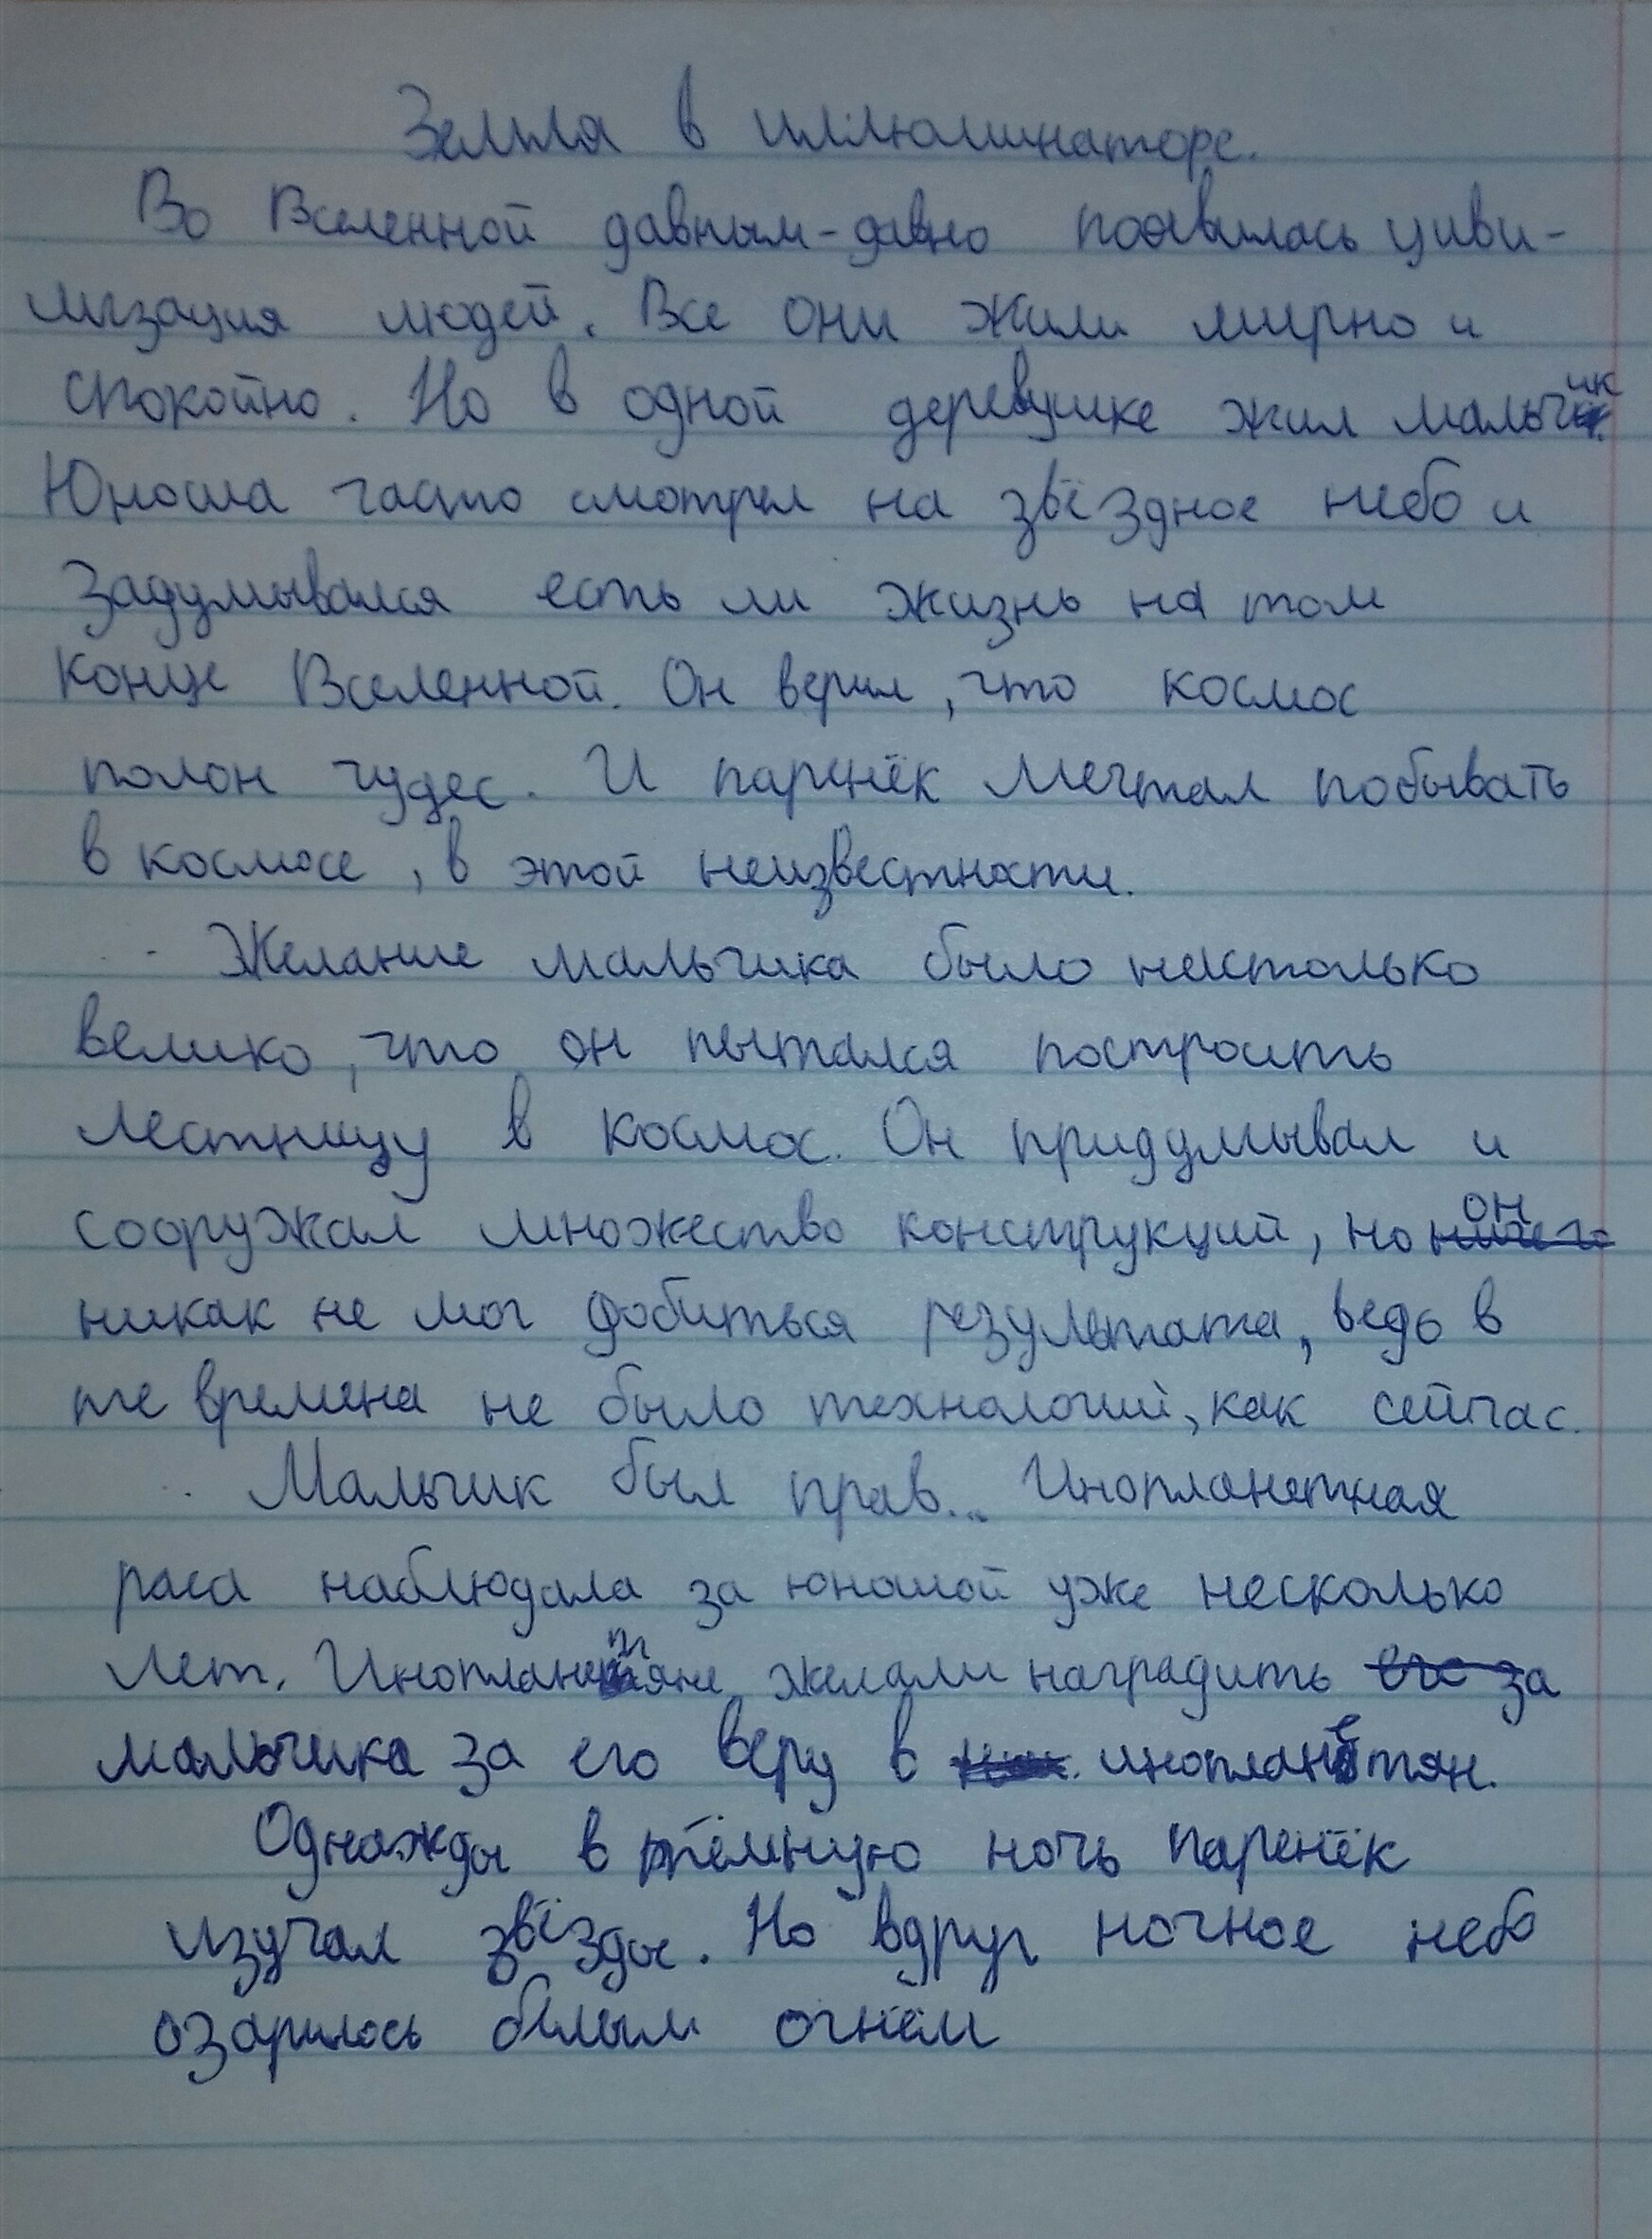 Земля в иллюминаторе.
Во Вселенной давным-давно появилась циви-
лизация людей. Все они жили мирно и
спокойно. Но в одной деревушке жил мальчик.
Юноша часто смотрел на звёздное небо и
задумывался есть ли жизнь на том
конце Вселенной. Он верил, что космос
полон чудес. И паренёк мечтал побывать
в космосе, в этой неизвестности.
Желание мальчика было настолько
велико, что он пытался построить
лестницу в космос. Он придумывал и
сооружал множество конструкций, но ничего он
никак не мог добиться результата, ведь в
те времена не было технологий, как сейчас.
Мальчик был прав... Инопланетная
раса наблюдала за юношой уже несколько
лет. Инопланетяне желали наградить его за
мальчика за его веру в инопланетян.
Однажды в тёмную ночь паренёк
изучал звёзды. Но вдруг ночное небо
озарилось белым огнём